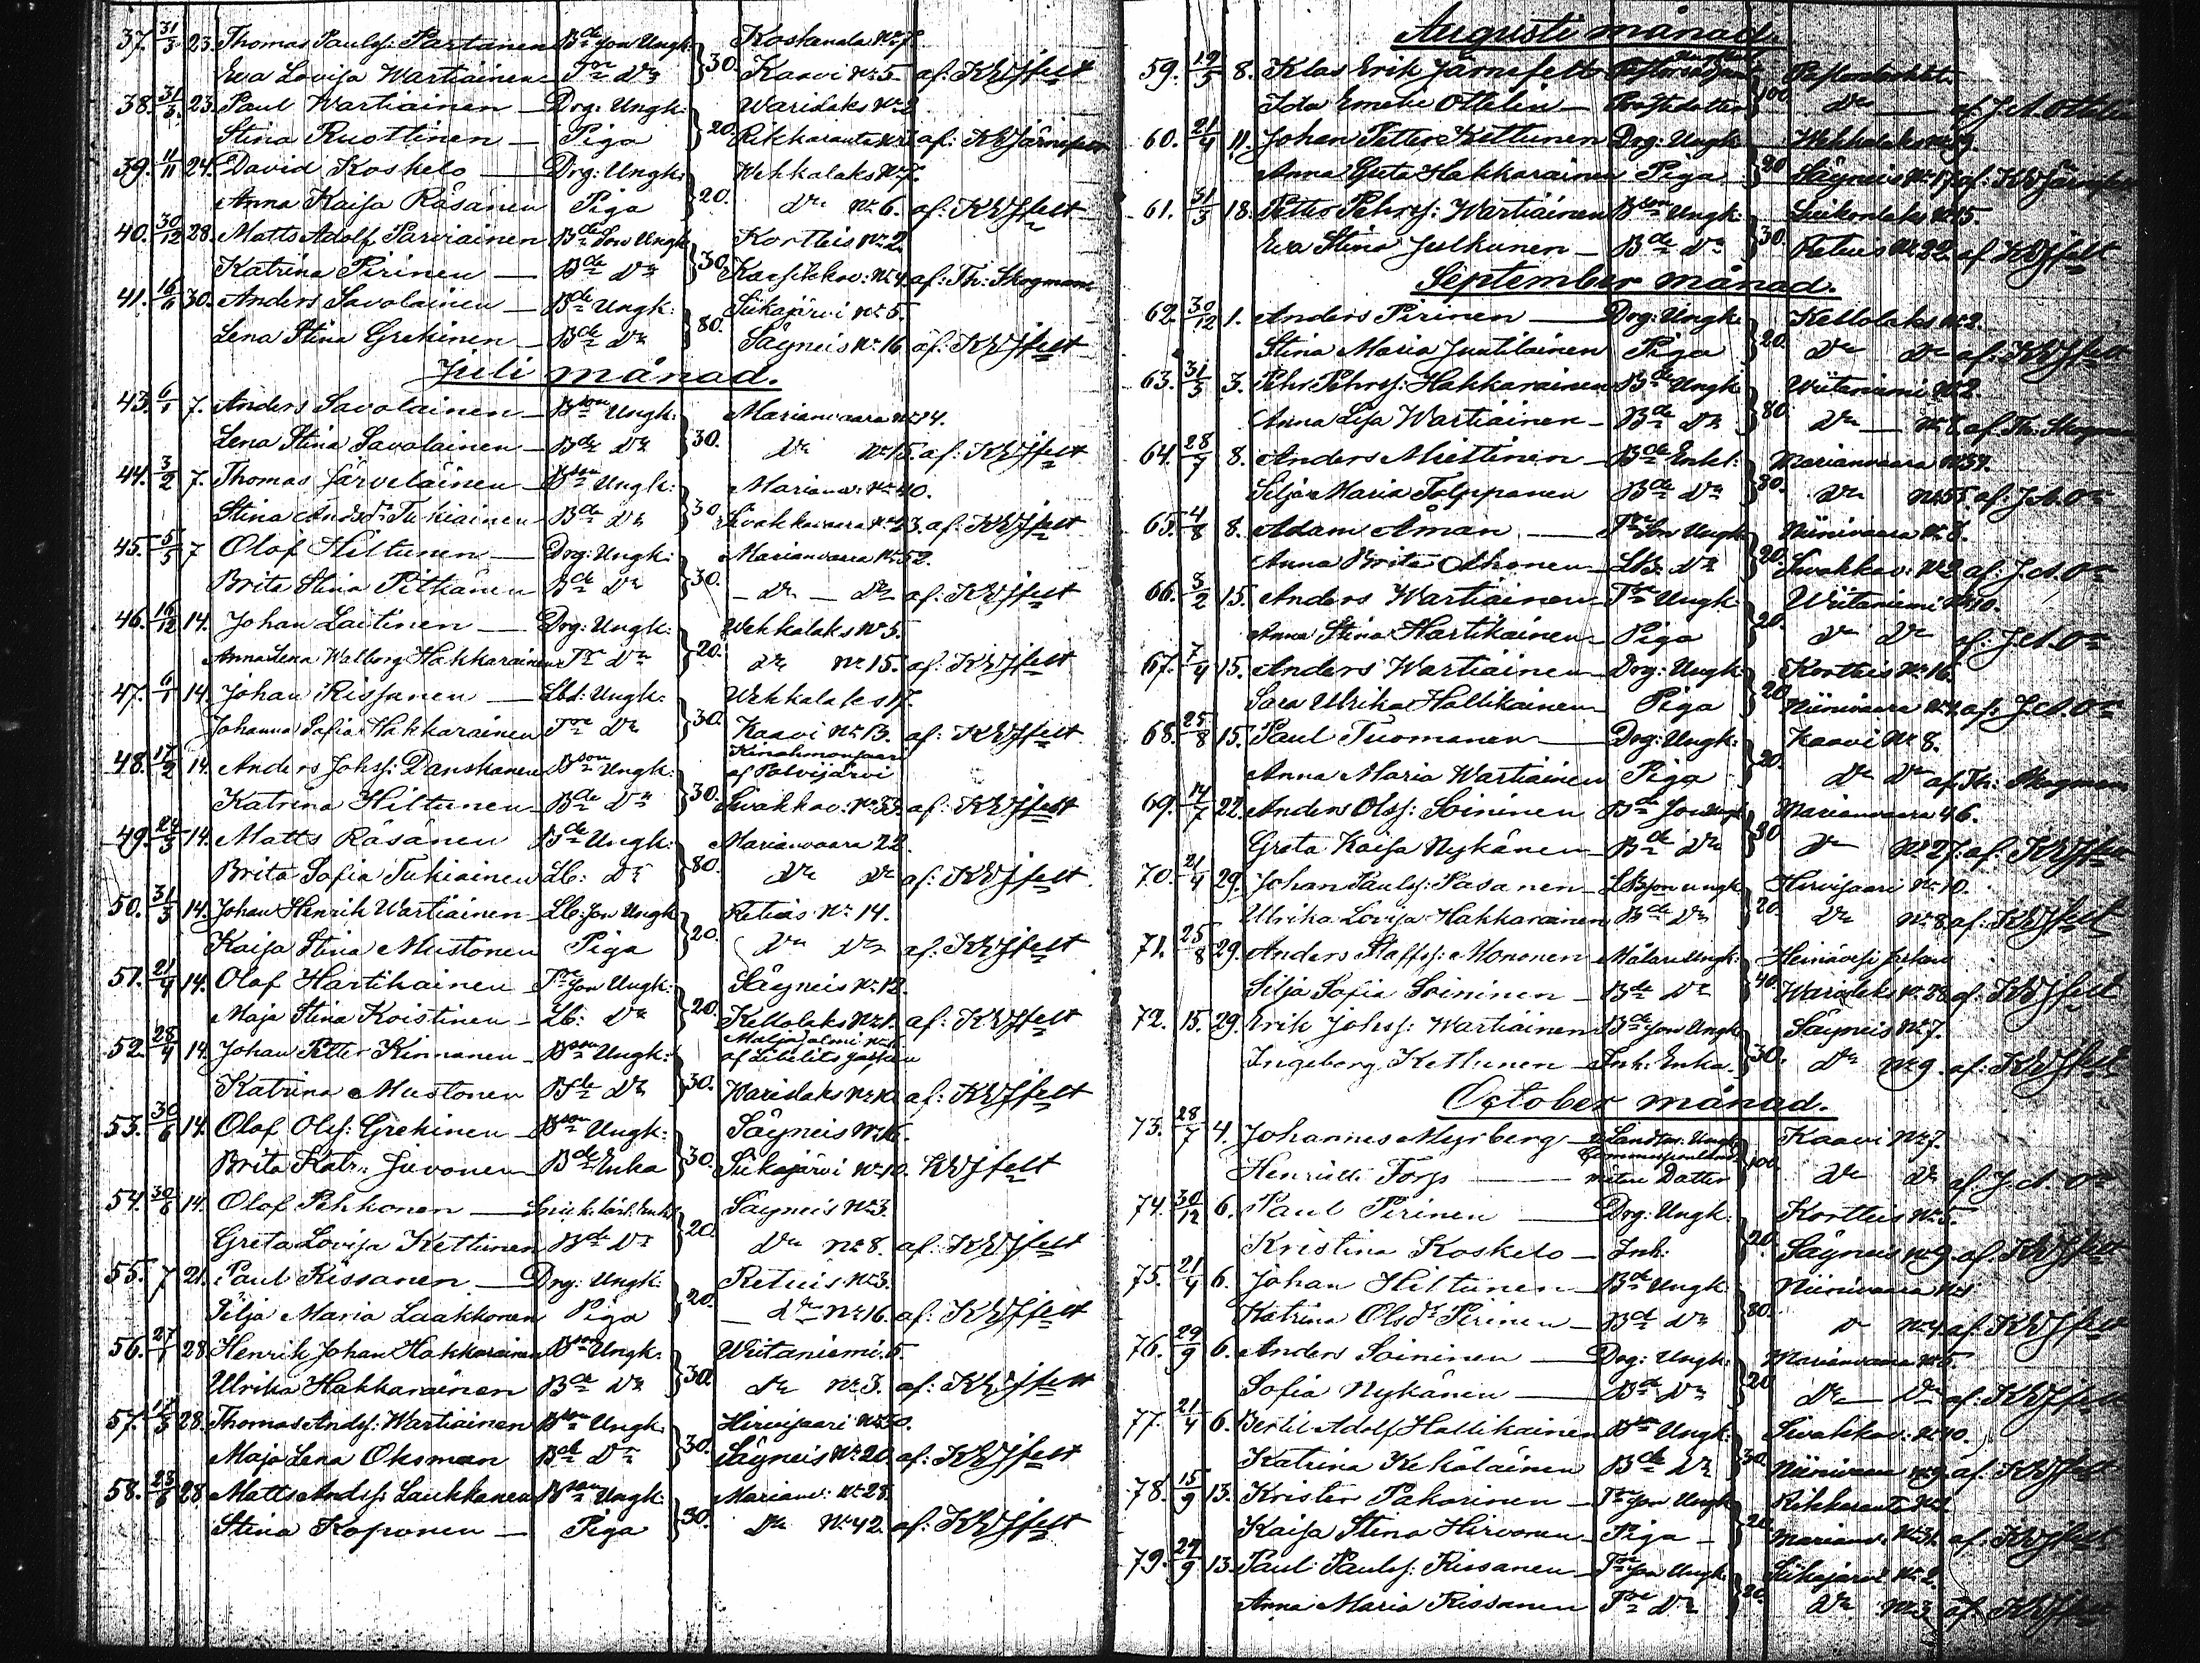 37. 31/3 23. Thomas Paulss: Partanen Bde Son Ungk: Koskanala No 7.
Eva Lovisa Wartiainen Tre Dr 30. Kaavi No 5 af: KEJfelt
38. 31/3 23. Paul Wartiainen — Drg: Ungk: Warislaks No 2
Stina Ruottinen — Piga 20. Rikkaranta af: KEJärnefelt
39. 11/11 24. David Koskelo — Drg: Ungk: Wehkalaks No 7.
Anna Kaisa Räsänen Piga 20. Dr No 6. af: KEJfelt
40. 30/12 28. Matts Adolf Parviainen Bde Son Ungk Kortteis No 2
Katrina Pirinen — Bde Dr 30. No 4 af: Th: Skogman
41. 30. Anders Savolainen — Bde Ungk: Siikajärvi No 5.
Lena Stina Grekinen — Bde Dr 80. Säyneis No 16 af: KEJfelt
Juli månad.
43. 6/1 7. Anders Savolainen — Bson Ungk: Marianvaara No 14.
Lena Stina Savolainen — Bde Dr 30. Dr No 15. af: KEJfelt
44. 3/2 7. Thomas Järveläinen — Bson Ungk: Marianv: No 40.
Stina Andsdr Tukiainen Bde Dr 30. Sivakkavaara No 23. af: KEJfelt
45. 5/5 7 Olof Hiltunen — Drg: Ungk: Marianvaara No 52.
Brita Stina Pitkänen Bde Dr 30. — Dr — Dr af: KEJfelt
46. 16/12 14. Johan Laitinen — Drg: Ungk: Wehkalaks No 5.
Anna Lena Walborg Hakkarainen Tre Dr 20. Dr No 15. af: KEJfelt
47. 6/1 14. Johan Rissanen — Lbd: Ungk: Wehkalaks 17.
Johanna Sofia Hakkarainen Tre Dr 30. Kaavi No 13. af: KEJfelt
48. 17/2 14. Anders Johss: Danskanen Bson Ungk: af Polvijärvi
Katrina Hiltunen — Bde Dr 30. Sivakkav: No 33. af: KEJfelt
49. 24/3 14. Matts Räsänen Bde Ungk: Marianvaara 22.
Brita Sofia Tukiainen Lb: Dr 80. Dr Dr af: KEJfelt
50. 31/3 14. Johan Henrik Wartiainen Lb: Son Ungk Retuis No 14.
Kaisa Stina Mustonen Piga 20. Dr Dr af: KEJfelt
51. 21/4 14. Olof Hartikainen — Tre Son Ungk: Säyneis No 12.
Maja Stina Koistinen — Lb: Dr 20. Kellolaks No 1. af: KEJfelt
52. 28/4 14. Johan Petter Kinnanen — Bson Ungk: af Libelits
Katrina Mustonen Bde Dr 30. Warislaks No 10. af: KEJfelt
53. 30/6 14. Olof Olss: Grekinen — Bson Ungk: Säyneis No 16.
Brita Katr: Juvonen Bde Enka 30. Siikajärvi No 10. KEJfelt
54. 30/6 14. Olof Pehkonen — Säyneis No 3.
Greta Lovisa Kettunen Bde Dr 20. Dr No 8. af: KEJfelt
55. 7 21. Paul Rissanen — Drg: Ungk: Retuis No 3.
Silja Maria Laakkonen Piga 20. — Dr No 16. af: KEJfelt
56. 27/1 28. Henrik Johan Hakkarainen Bson Ungk: Wiitaniemi. 5.
Ulrika Hakkarainen Bde Dr 30. Dr No 3. af: KEJfelt
57. 28. Thomas Andss: Wartiainen Bson Ungk: Hirvisaari No 30.
Maja Lena Oksman Bde Dr 30. Säyneis No 20. af: KEJfelt
58. 23/6 28 Matts Andss: Laukkanen Bson Ungk: Marianv: No 28.
Stina Koponen — Piga 30. Dr No 42. af: KEJfelt
Augusti månad.
59. 19/5 8. Klas Erik Järnefelt
Ida Emelie Ottelin — Prostdotter 100. Dr — af J.A. Ottelin
60. 21/4 11. Johan Petter Kettunen Drg: Ungk: Wehkalaks No 9.
Anna Greta Hakkarainen Piga 20 Säyneis No 17. af: KEJärnefelt
61. 31/3 18. Petter Pehrss: Wartiainen Bson Ungk: Luikonlaks No 15.
Eva Stina Julkunen — Bde Dr 30. Retuis No 22. af KEJfelt
September månad.
62. 30/12 1. Anders Pirinen — Drg: Ungk: Kellolaks No 2.
Stina Maria Juutilainen Piga 20. Dr Dr af: KEJfelt
63. 31/3 3. Pehr Pehrss: Hakkarainen Bde Ungk Wiitaniemi No 2.
Anna Lisa Wartiainen — Bde Dr 80. Dr — af. Th: Skogman
64. 28/7 8. Anders Miettinen — Bde Enkl: Marianvaara No 37.
Silja Maria Tolppanen Bde Dr 80. Dr No 55. af: J.A.On
65. 4/8 8. Adam Åman — Tre Son Ungk Niinivaara No 8.
Anna Brita Okkonen — Lb: Dr 20. Sivakkav: No 2 af: J.A.On
66. 3/2 15. Anders Wartiainen Tre Ungk: Wiitaniemi No 10.
Anna Stina Hartikainen Piga 20. Dr Dr af: J.A.On
67. 7/4 15. Anders Wartiainen Drg: Ungk: Kortteis No 16.
Sara Ulrika Hallikainen Piga 20. Niinivaara af: J.A.On
68. 25/8 15. Paul Tuomanen — Drg: Ungk: Kaavi No 8.
Anna Maria Wartiainen Piga 20. Dr Dr af Th: Skogman
69. 14/7 22. Anders Olss: Soininen Bde Son Ungk Marianvaara 46.
Greta Kaisa Nykänen Bde Dr 30 Dr No 27. af: KEJfelt
70. 21/4 29. Johan Paulss: Pasanen — Lb Son Ungk Hirvisaari No 10.
Ulrika Lovisa Hakkarainen Bde Dr 20. Dr No 8. af: KEJfelt
71. 25/8 29. Anders Staffss: Mononen Målare Ungk: Heinävesi
Silja Sofia Soininen — Bde Dr 40. Warislaks No 28 af: KEJfelt
72. 15. 29. Erik Johss: Wartiainen Bde Son Ungk Säyneis No 7.
Ingeborg Kettunen — Inh: Enka. 30. Dr No 9. af: KEJfelt
October månad.
73. 28/7 4. Johannes Myrberg — Kaavi No 7.
Henriette Forss — Dotter 100. Dr Dr af J.A. On
74. 30/12 6. Paul Pirinen — Drg: Ungk: Kortteis No 5.
Kristina Koskelo — Inh: 20. Säyneis No 9. af: KEJfelt
75. 21/4 6. Johan Hiltunen — Bde Ungk: Niinivaara
Katrina Olsdr Pirinen — Bde Dr 80. D No 4. af: KEJfelt
76. 29/9 6. Anders Soininen — Drg: Ungk: Marianvaara No 5.
Sofia Nykänen — Bde Dr 20 Dr — Dr af: KEJfelt
77. 21/4 6. Bertil Adolf Hallikainen Bson Ungk: Sivakkav: No 40.
Katrina Kekäläinen Bde Dr 30. Niinivaara af: KEJfelt
78. 15/9 13. Krister Pakarinen — Tre Son Ungk Rikkaranta
Kaisa Stina Hirvonen — Piga — 20. Marianv: No 31. af: KEJfelt
79. 29/9 13. Paul Paulss: Rissanen — Tre Son Ungk Siikajärvi No 2.
Anna Maria Rissanen Tre Dr 20. Dr No 3 af: KEJfelt